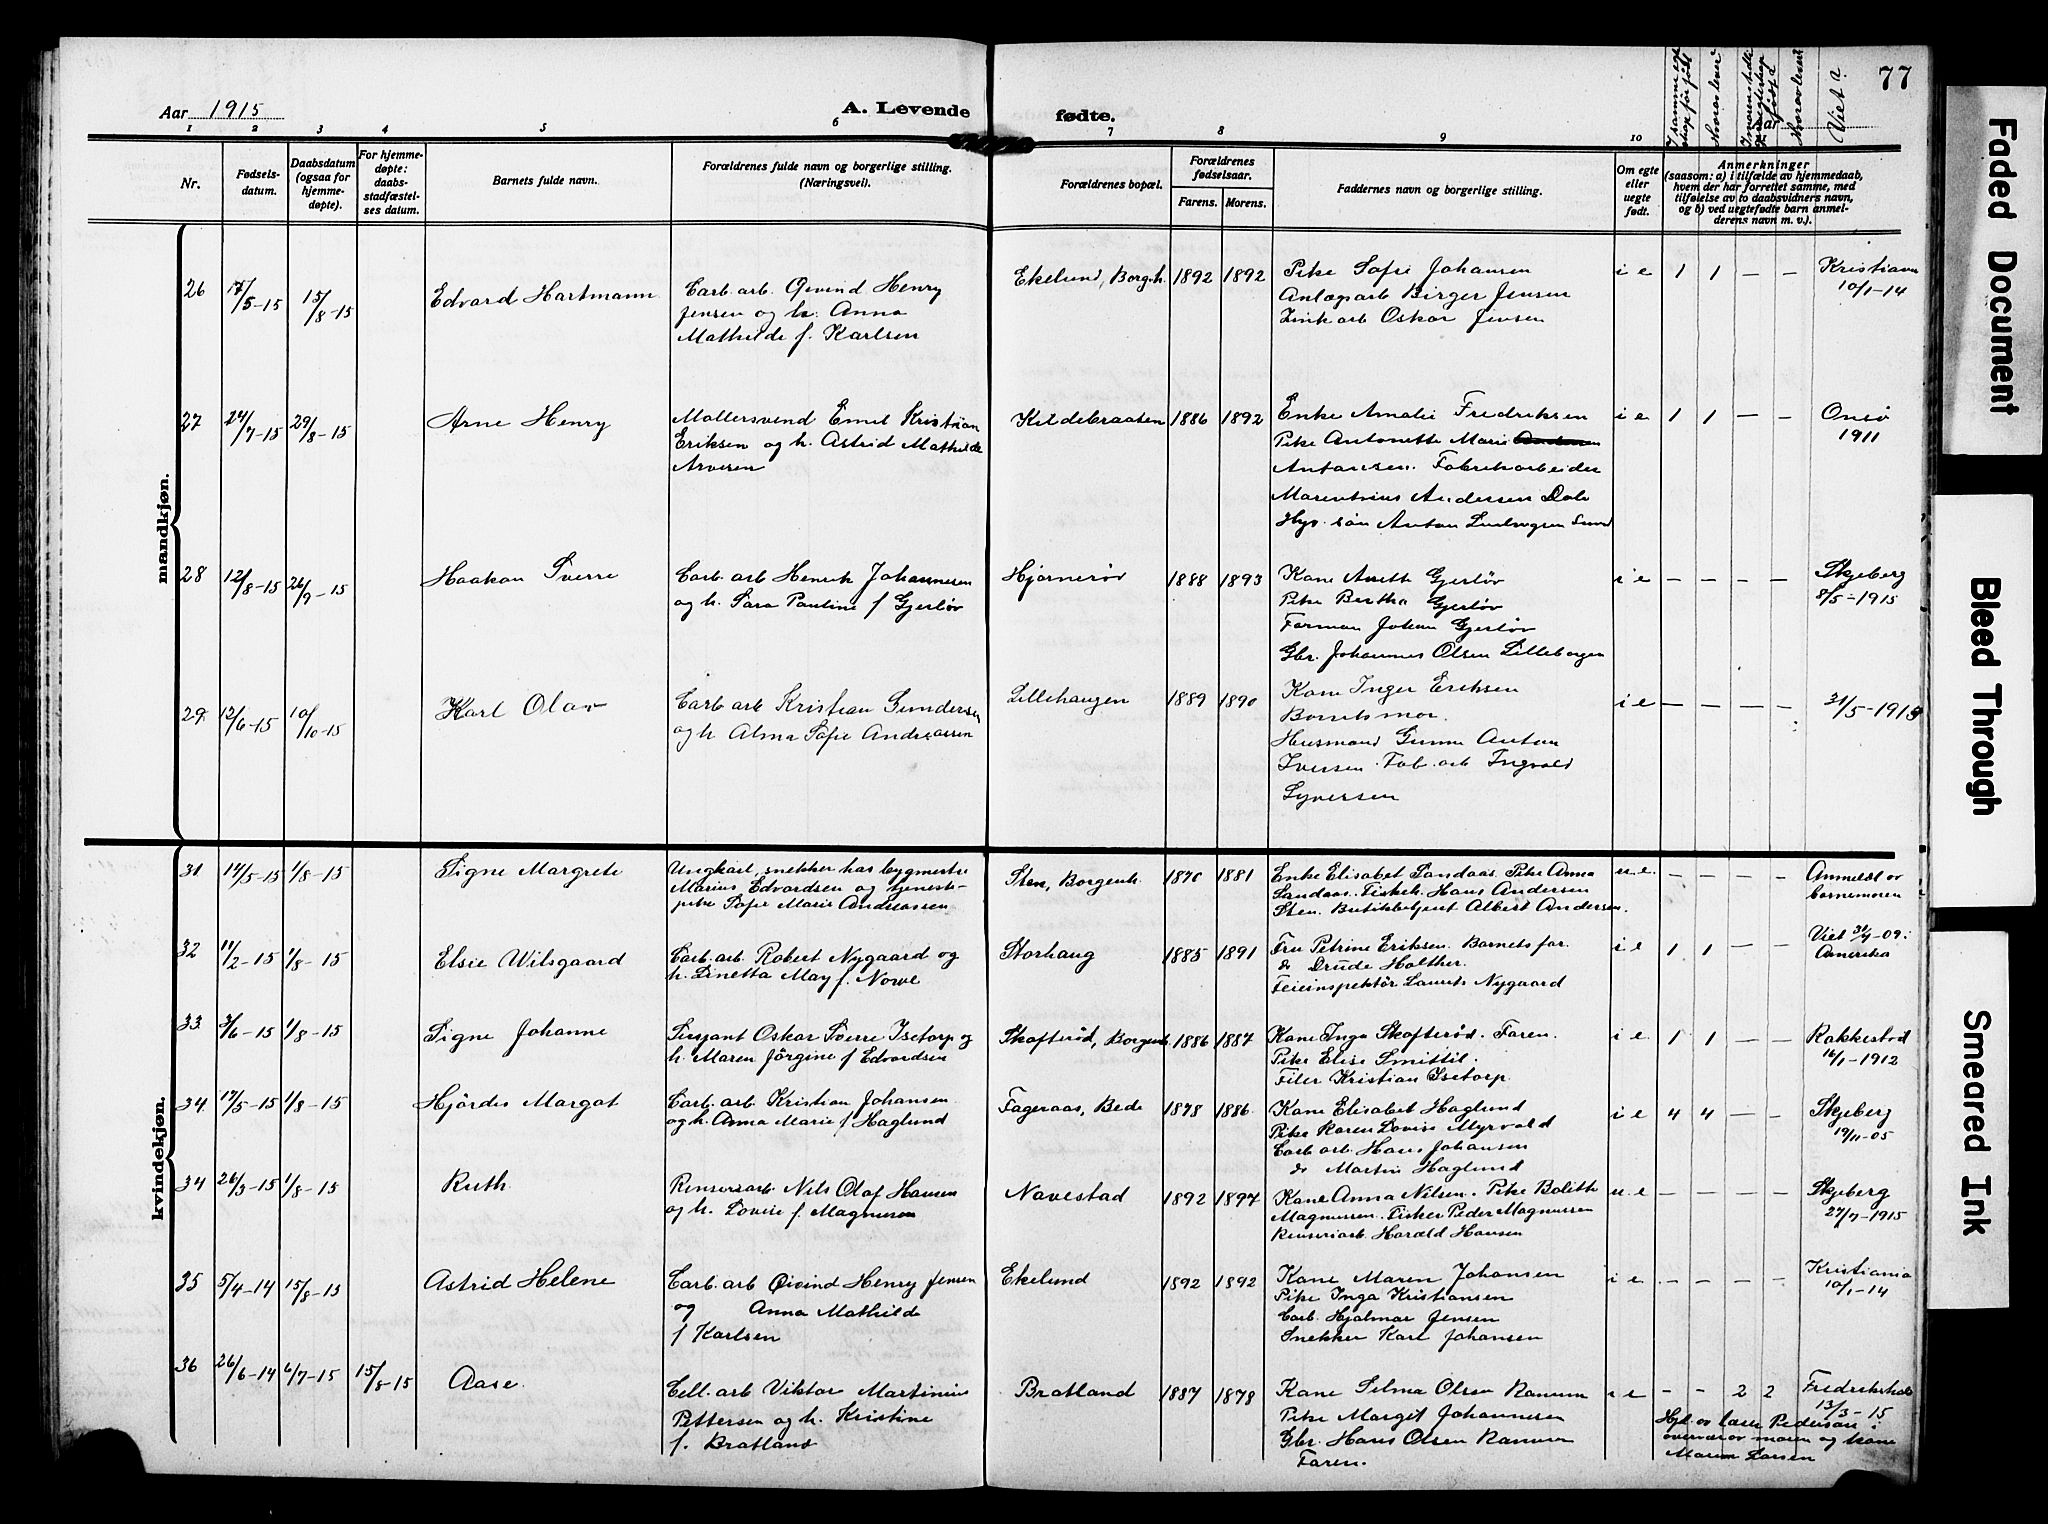 77
Aar 1915
A. Levende fødte.
Aar
Viet a.
1 2 3 4 5 6 7 8 9 10
Nr.
Fødsels-
datum.
Daabsdatum
(ogsaa for
hjemme-
døpte).
For hjemme-
døpte:
daabs-
stadfæstel-
ses datum.
Barnets fulde navn.
Forældrenes fulde navn og borgerlige stilling.
(Næringsvei).
Forældrenes bopæl.
Forældrenes
fødselsaar.
Farens. Morens.
Faddernes navn og borgerlige stilling.
Om egte
eller
uegte
født.
Anmerkninger
(saasom: a) i tilfælde av hjemmedaab,
hvem der har forrettet samme, med
tilføielse av to daabsvidners navn,
og b) ved uegtefødte barn anmel-
derens navn m. v.).
mandkjøn.
26 15/8-15 Edvard Hartmann
Carb. arb. Øivind Henry
Jensen og h. Anna
Mathilde f. Karlsen
Ekelund, Borgenh. 1892 1892
Pike Sofie Johansen
Anlægsarb Birger Jensen
Zinkarb Oskar Jensen
i e 1 1 – –
10/1-14
27 24/7-15 29/8-15 Arne Henry
Møllersvend Emil Kristian
Eriksen og h. Astrid Mathilde
Arvesen
Kildebraaten 1886 1892
Enke Amalie Fredriksen
Pike Antonette Marie
Antonsen. Fabrikarbeider
Andersen Dale
i e 1 1 – –
Onsø
1911
28 12/8-15 26/9-15 Haakon Sverre
Carb. arb Henrik Johannesen
og h. Sara Pauline f Gjerløv
Hjørnerød 1888 1893
Kone Anette Gjerløv
Pike Bertha Gjerløv
Formann Johan Gjerløv
Gbr. Johannes Olsen Lilleborgen
i e – – – –
Skjeberg
8/5-1915
29 12/6-15 10/10-15 Karl Olav
Carb arb Kristian Gundersen
og h Alma Sofie Andreassen
Lillehaugen 1889 1890
Kone Inger Eriksen
Barnets mor.
Husmand Gunnar Anton
Iversen. Fab. arb Ingvald
Syversen
i e – – – –
kvindekjøn.
31 14/5-15 1/8-15 Signe Margrete
Ungkarl, snekker hos bygmester
Marius Edvardsen og tjeneste-
pike Sofie Marie Andreassen
Sten, Borgenh. 1876 1881
Enke Elisabet Sandaas. Pike Anna
Sandaas. Fiskeh. Hans Andersen
Sten. Butikbetjent Albert Andersen.
u e. – – – –
Anmeldt av
barnemoren
32 11/2-15 1/8-15 Elsie Wilsgaard
Carb. arb. Robert Nygaard og
h. Linetta May f. Nowe
Storhaug 1885 1891
Fru Petrine Eriksen. Barnets far.
do Drude Holther.
Feieinspektør Laurits Nygaard
i e 1 1 – –
Amerika
33 3/6-15 1/8-15 Signe Johanne
Sersjant Oskar Sverre Isetorp og
h. Maren Jørgine f Edvardsen
Skofterød, Borgenh 1886 1887
Kone Inga Skofterød. Faren.
Pike Elise Smittil.
Filer Kristian Isetorp.
i e 1 1 – –
Rakkestad
14/1-1912
34 17/5-15 1/8-15 Hjørdis Margot
Carb. arb Kristian Johansen
og h. Anna Marie f Haglund
Fageraas, Bede 1878 1886
Kone Elisabet Haglund
Pike Karen Lovise Myrvold
Carb arb. Hans Johansen
do Martin Haglund
i e 4 4 – –
Skjeberg
19/11-05
34 26/3-15 1/8-15 Ruth
Renseriarb Nils Olaf Hansen
og h. Lovise f. Magnussen
Navestad 1892 1897
Kone Anna Nilsen. Pike Bolette
Magnussen. Fisker Peder Magnussen
Renseriarb. Harald Hansen
u e – – – –
Skjeberg
27/7-1915
35 5/4-14 15/8-15 Astrid Helene
Carb. arb Øivind Henry Jensen
og Anna Mathilde
f Karlsen
Ekelund 1892 1892
Kone Maren Johansen
Pike Inga Kristiansen
Carb. Hjalmar Jensen
Snekker Karl Johansen
i e – – – –
Kristiania
10/1-14
36 26/6-14 6/7-15 15/8-15 Aase
Cell. arb Viktor Martinius
Pettersen og h. Kristine
f. Bratland
Bratland 1887 1878
Kone Selma Olsen Ramum
Pike Margit Johannesen
Gbr. Hans Olsen Ramum
Faren.
i e – – 2 2
Fredrikshald
13/3-15
Hjd. av lærer Pedersen i
overvær av moren og kone
Maren Larsen
Faded Document
Bleed Through
Smeared Ink